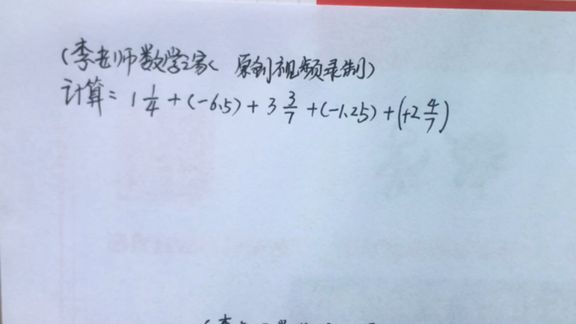 (李老师数学之家 原创视频录制)
计算: 1 1/4 + (-6.5) + 3 3/7 + (-1.25) + (+2 4/7)